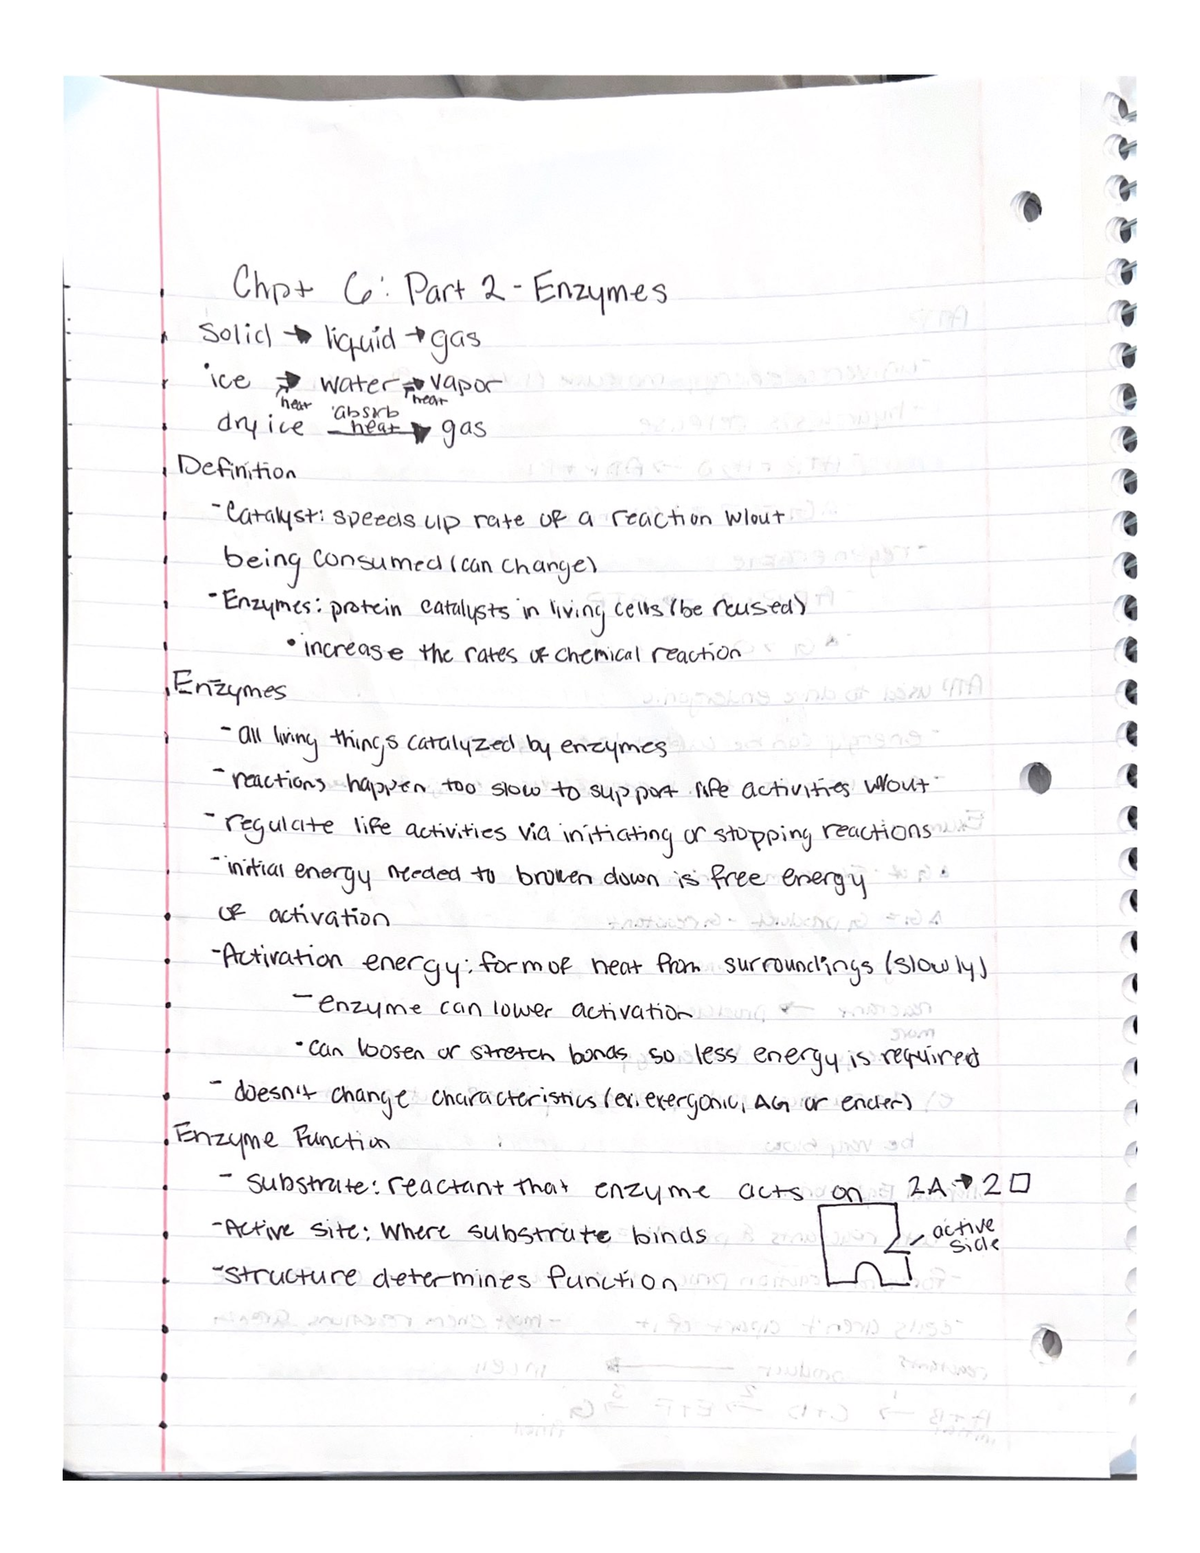 Chpt 6: Part 2 - Enzymes
Solid → liquid → gas
ice → water → vapor
heat heat
dry ice absorb heat → gas
Definition
- Catalyst: speeds up rate of a reaction w/out
being consumed (can change)
- Enzymes: protein catalysts in living cells (be reused)
• increase the rates of chemical reaction
Enzymes
- all living things catalyzed by enzymes
- reactions happen too slow to support life activities w/out
- regulate life activities via initiating or stopping reactions
- initial energy needed to broken down is free energy
of activation
- Activation energy: form of heat from surroundings (slowly)
- enzyme can lower activation
• can loosen or stretch bonds so less energy is required
- doesn't change characteristics (ex. exergonic, ΔG or ender)
Enzyme Function
- substrate: reactant that enzyme acts on 2A → 2 □
- Active site: where substrate binds
active
side
- structure determines function